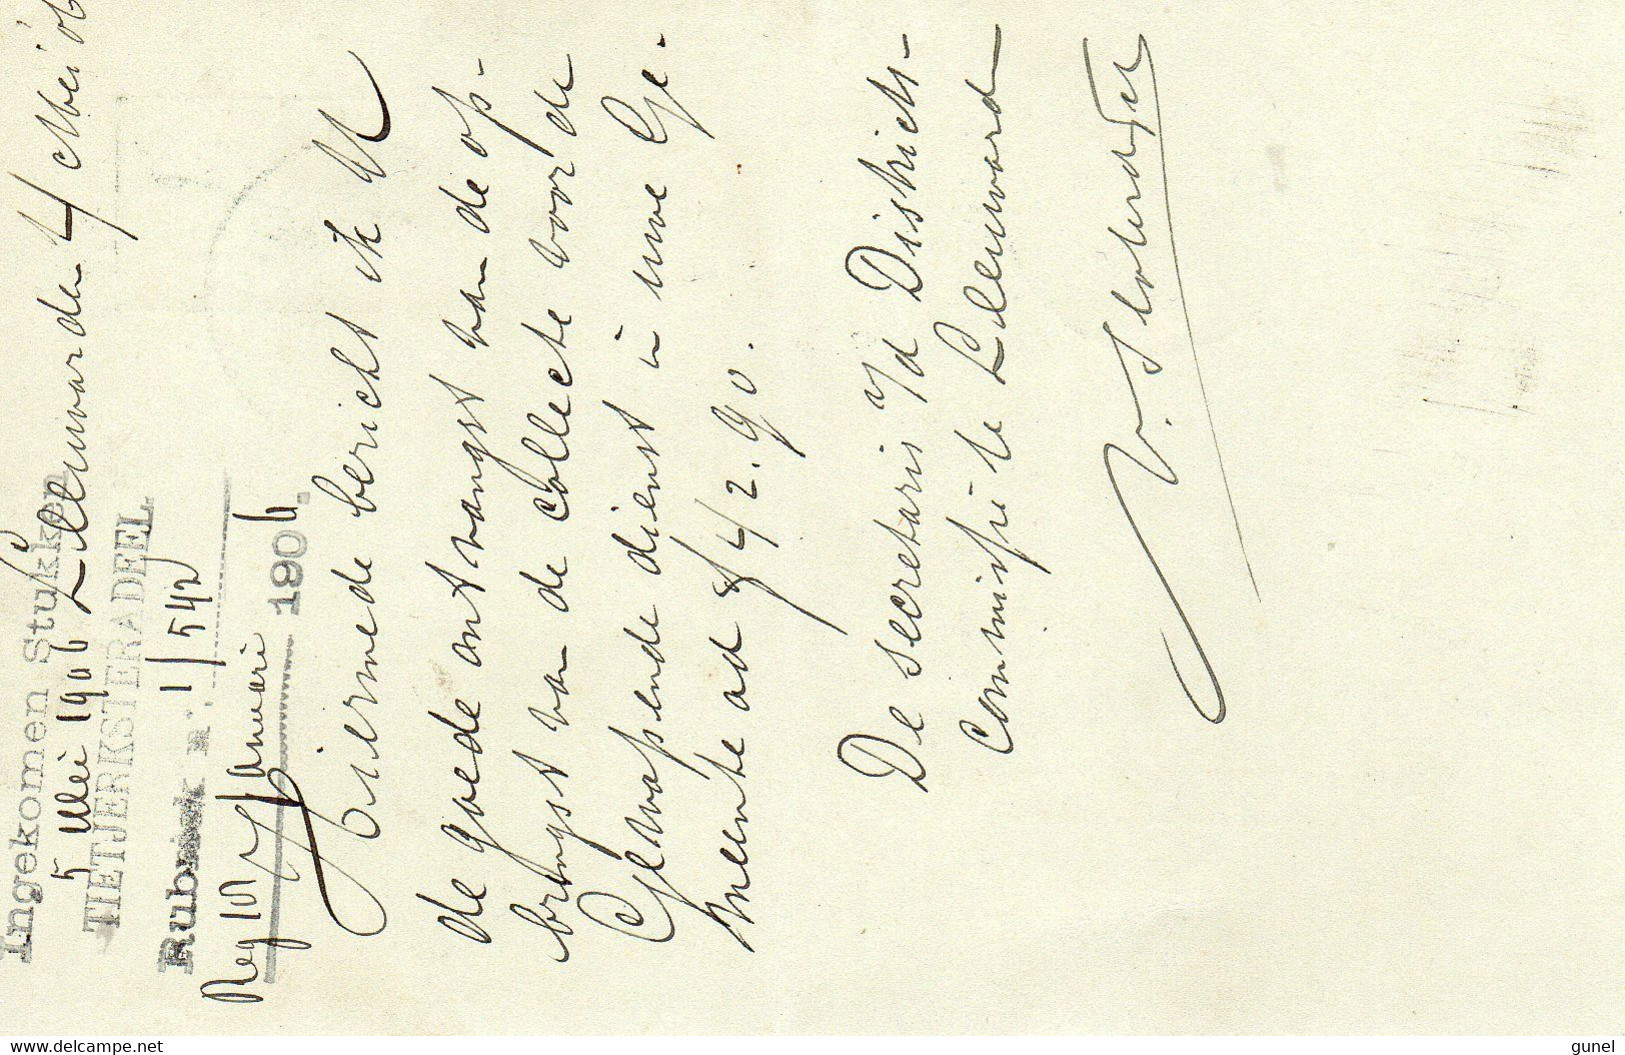 Ingekomen Stukken
5 Mei 1906
TIETJERKSTERADEEL
Rubriek n. 1/542
Leeuwarden 4 Mei 06
Januari
1906.
Hiermede bericht ik U
de goede ontvangst van de op-
brengst van de collecte voor de
Gewapende dienst in uwe Ge-
meente ad f 42.90.
De secretaris v/d Districts-
Commissie te Leeuward
www.delcampe.net
gunel